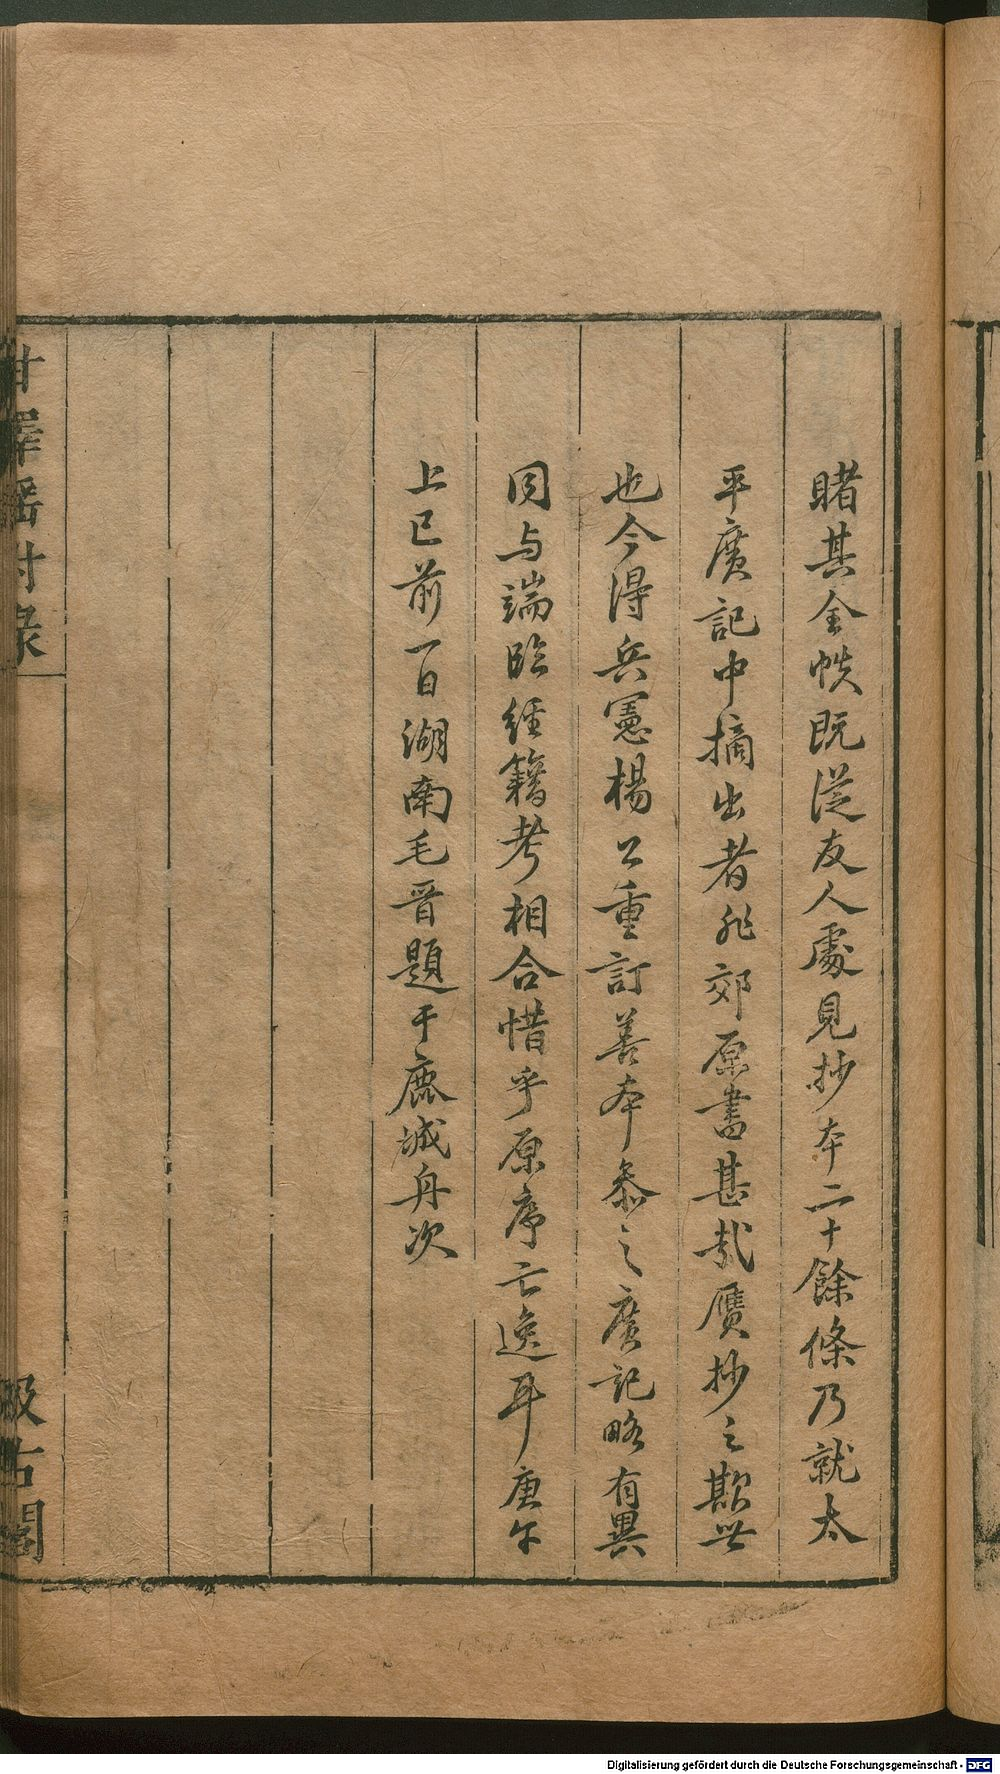 睹其全帙既從友人處見抄本二十餘條乃就太
平廣記中摘出者非郊原書甚哉贋抄之欺世
也今得兵憲楊公重訂善本叅之廣記略有異
同与端臨經籍考相合惜乎原序亡逸耳庚午
上巳前一日湖南毛晉題于鹿城舟次
甘澤謠附錄
汲古閣
Digitalisierung gefördert durch die Deutsche Forschungsgemeinschaft - DFG